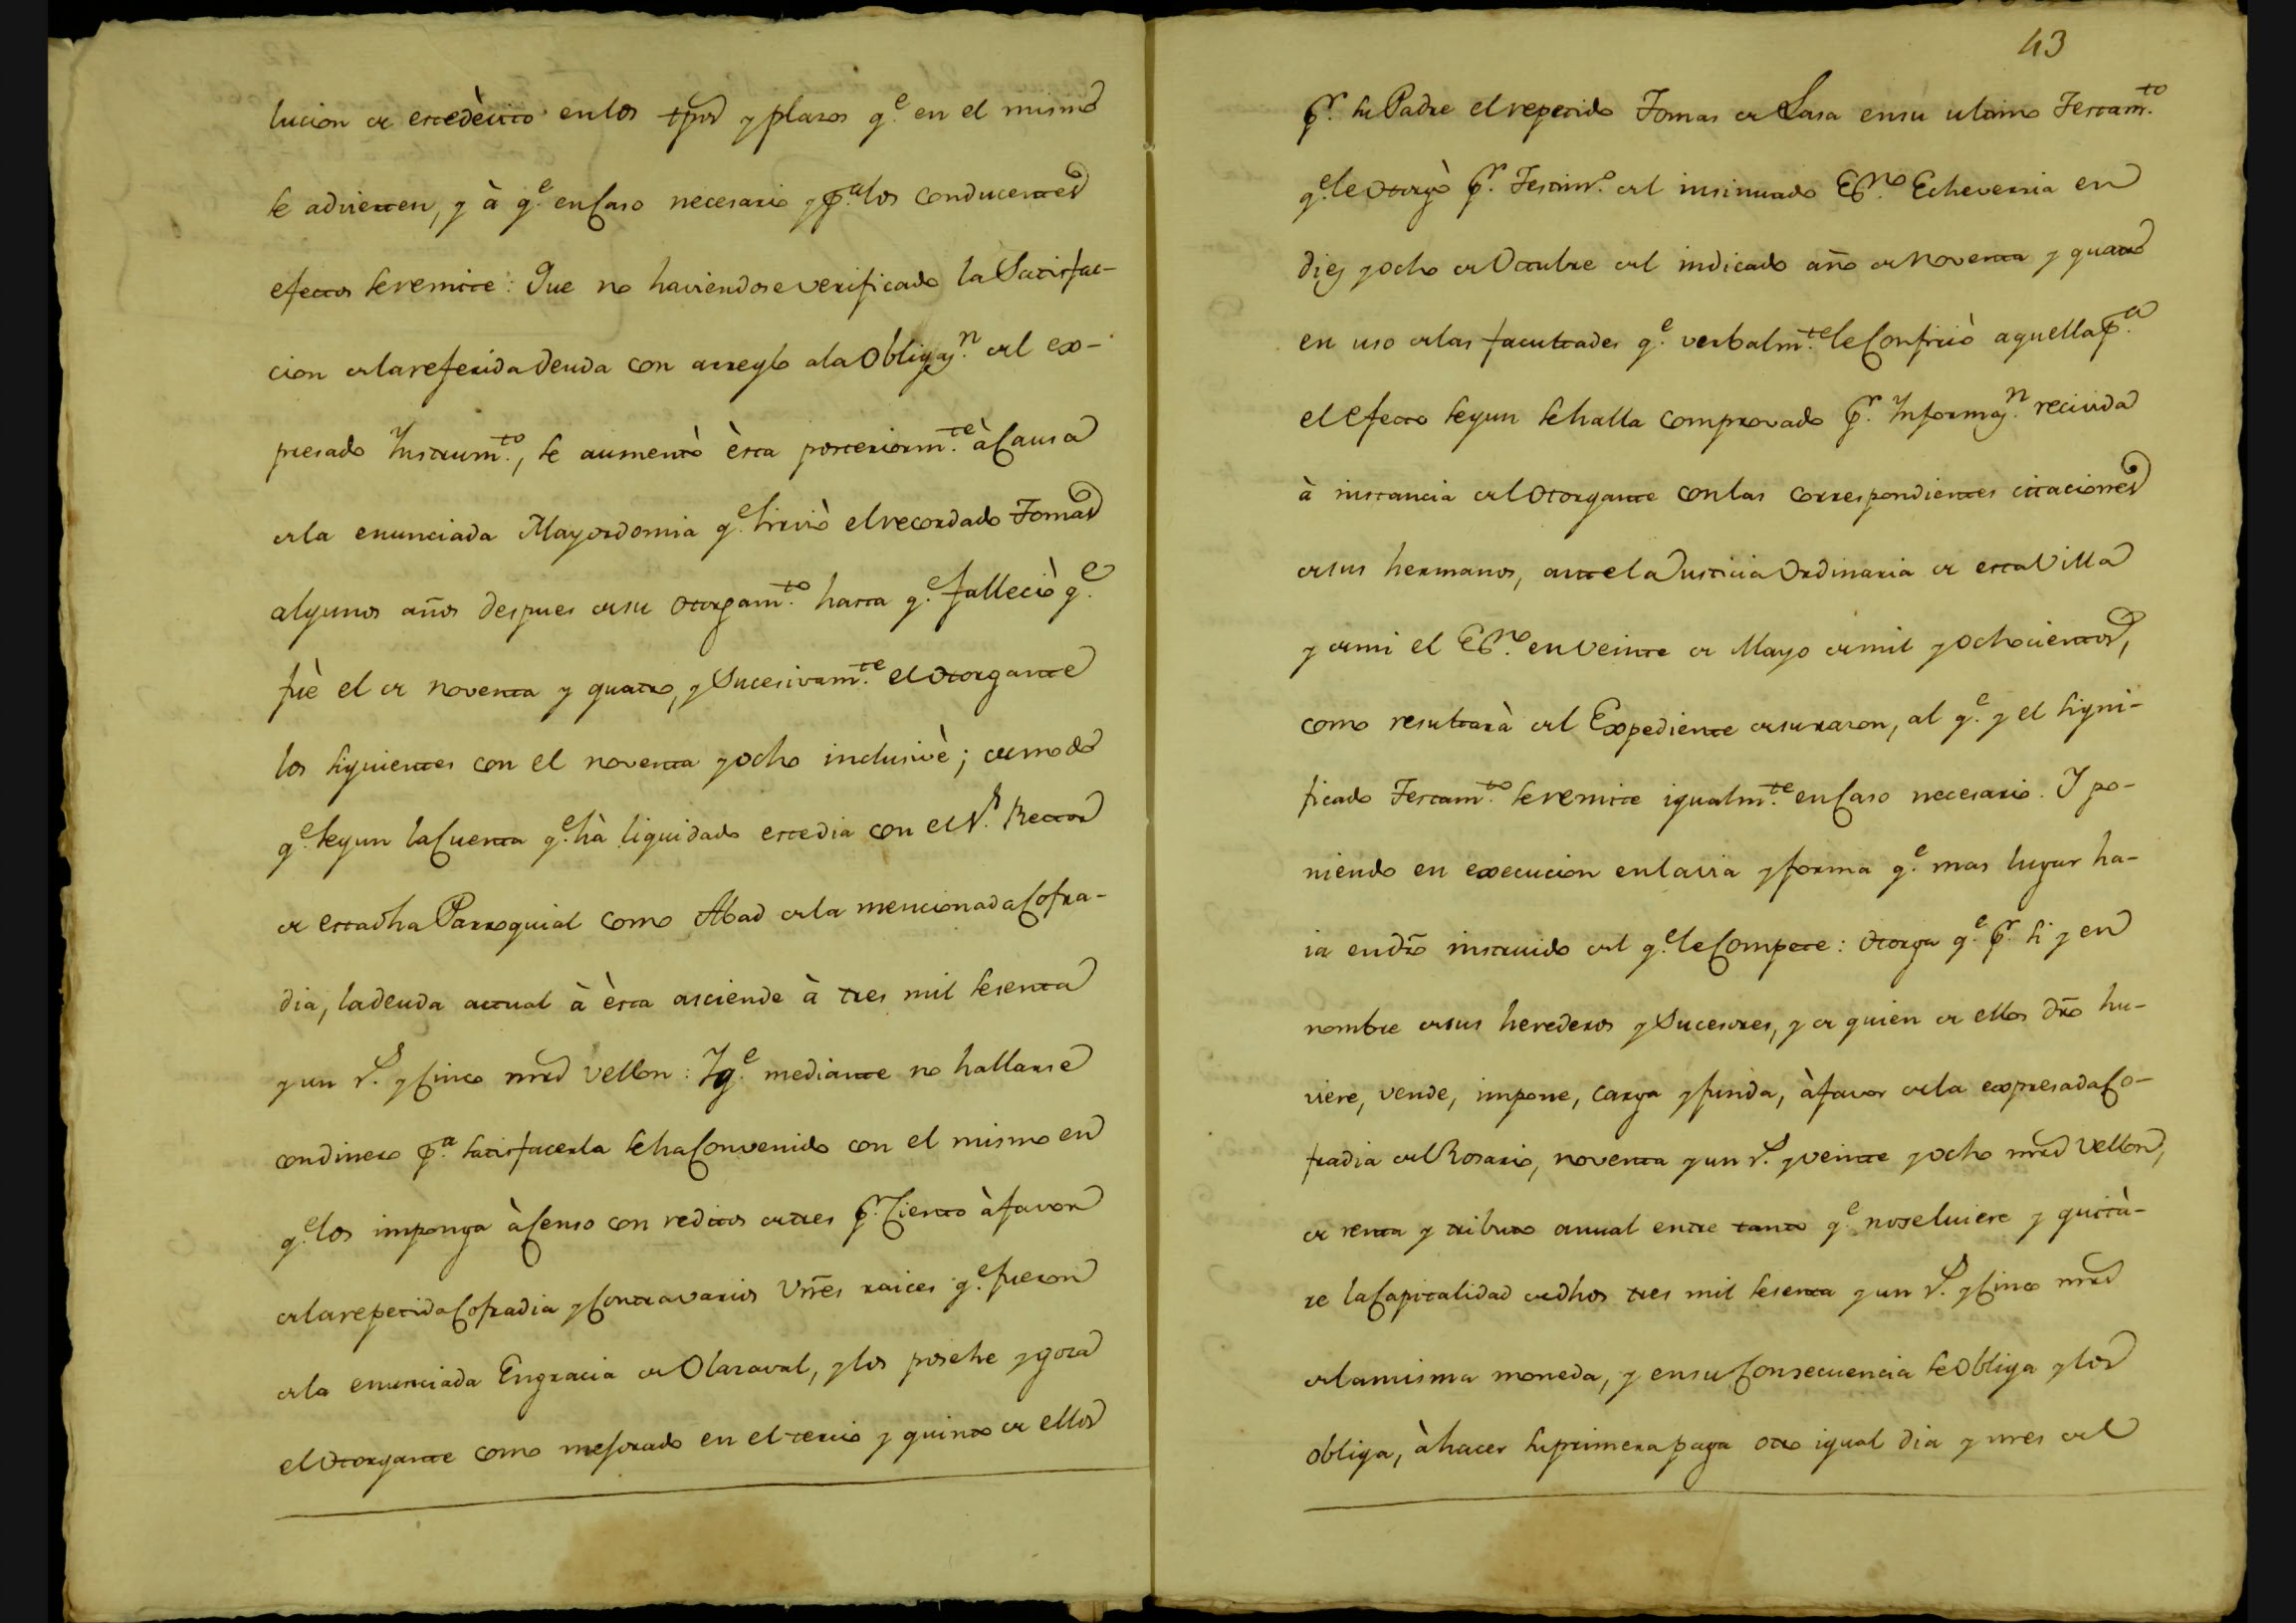 lucion de este dèvito en los tpos y plazos q.e en el mismo
se advierten, y à q.e en Caso necesario y p.a los conducentes
efectos se remite: Que no haviendose verificado la Satisfac-
cion de la referida deuda con arreglo a la Obligaz.n del ex-
presado Instrum.to, se aumentò èsta posteriorm.te à Causa
de la enunciada Mayordomia q.e sirviò el recordado Tomas
algunos años despues de su otorgam.to hasta q.e falleciò q.e
fuè el de noventa y quatro, y Sucesivam.te el Otorgante
los siguientes con el noventa y ocho inclusivè; de modo
q.e segun la Cuenta q.e hà liquidado este dia con el S.r Rector
de esta dha Parroquial como Abad de la mencionada Cofra-
dia, la deuda actual à èsta asciende à tres mil sesenta
y un r.s y Cinco mrs vellon: Y q.e mediante no hallarse
con dinero p.a satisfacerla se ha Convenido con el mismo en
q.e los imponga à Censo con reditos de tres p.r Ciento à favor
de la repetida Cofradia y Contra varios Vnes raices q.e fueron
de la enunciada Engracia de Olazaval, y los posehe y goza
el Otorgante como mejorado en el tercio y quinto de ellos
43
p.r su Padre el repetido Tomas de Sasa en su ultimo Testam.to
q.e le otorgò p.r Testim.o del insinuado Es.no Echeverria en
diez y ocho de Octubre del indicado año de noventa y quatro
en uso de las facultades q.e verbalm.te le Confiriò aquella p.a
el efecto segun se halla comprovado p.r Informaz.n recivida
à instancia del Otorgante con las correspondientes citaciones
de sus hermanos, ante la Justicia Ordinaria de esta Villa
y de mi el Es.no en veinte de Mayo de mil y ochocientos,
como resultarà del Expediente de su razon, al q.e y el signi-
ficado Testam.to se remite igualm.te en Caso necesario. Y po-
niendo en execucion en la via y forma q.e mas lugar ha-
ia en dro instruido del q.e le Compete: Otorga q.e p.r si y en
nombre de sus herederos y Sucesores, y de quien de ellos dro hu-
viere, vende, impone, carga y funda, à favor de la expresada Co-
fradia del Rosario, noventa y un r.s y veinte y ocho mrs vellon,
de renta y tributo anual entre tanto q.e no se luiere y quità-
re la Capitalidad de dhos tres mil sesenta y un r.s y Cinco mrs
de la misma moneda, y en su Consecuencia se Obliga y los
obliga, à hacer su primera paga otro igual dia y mes del